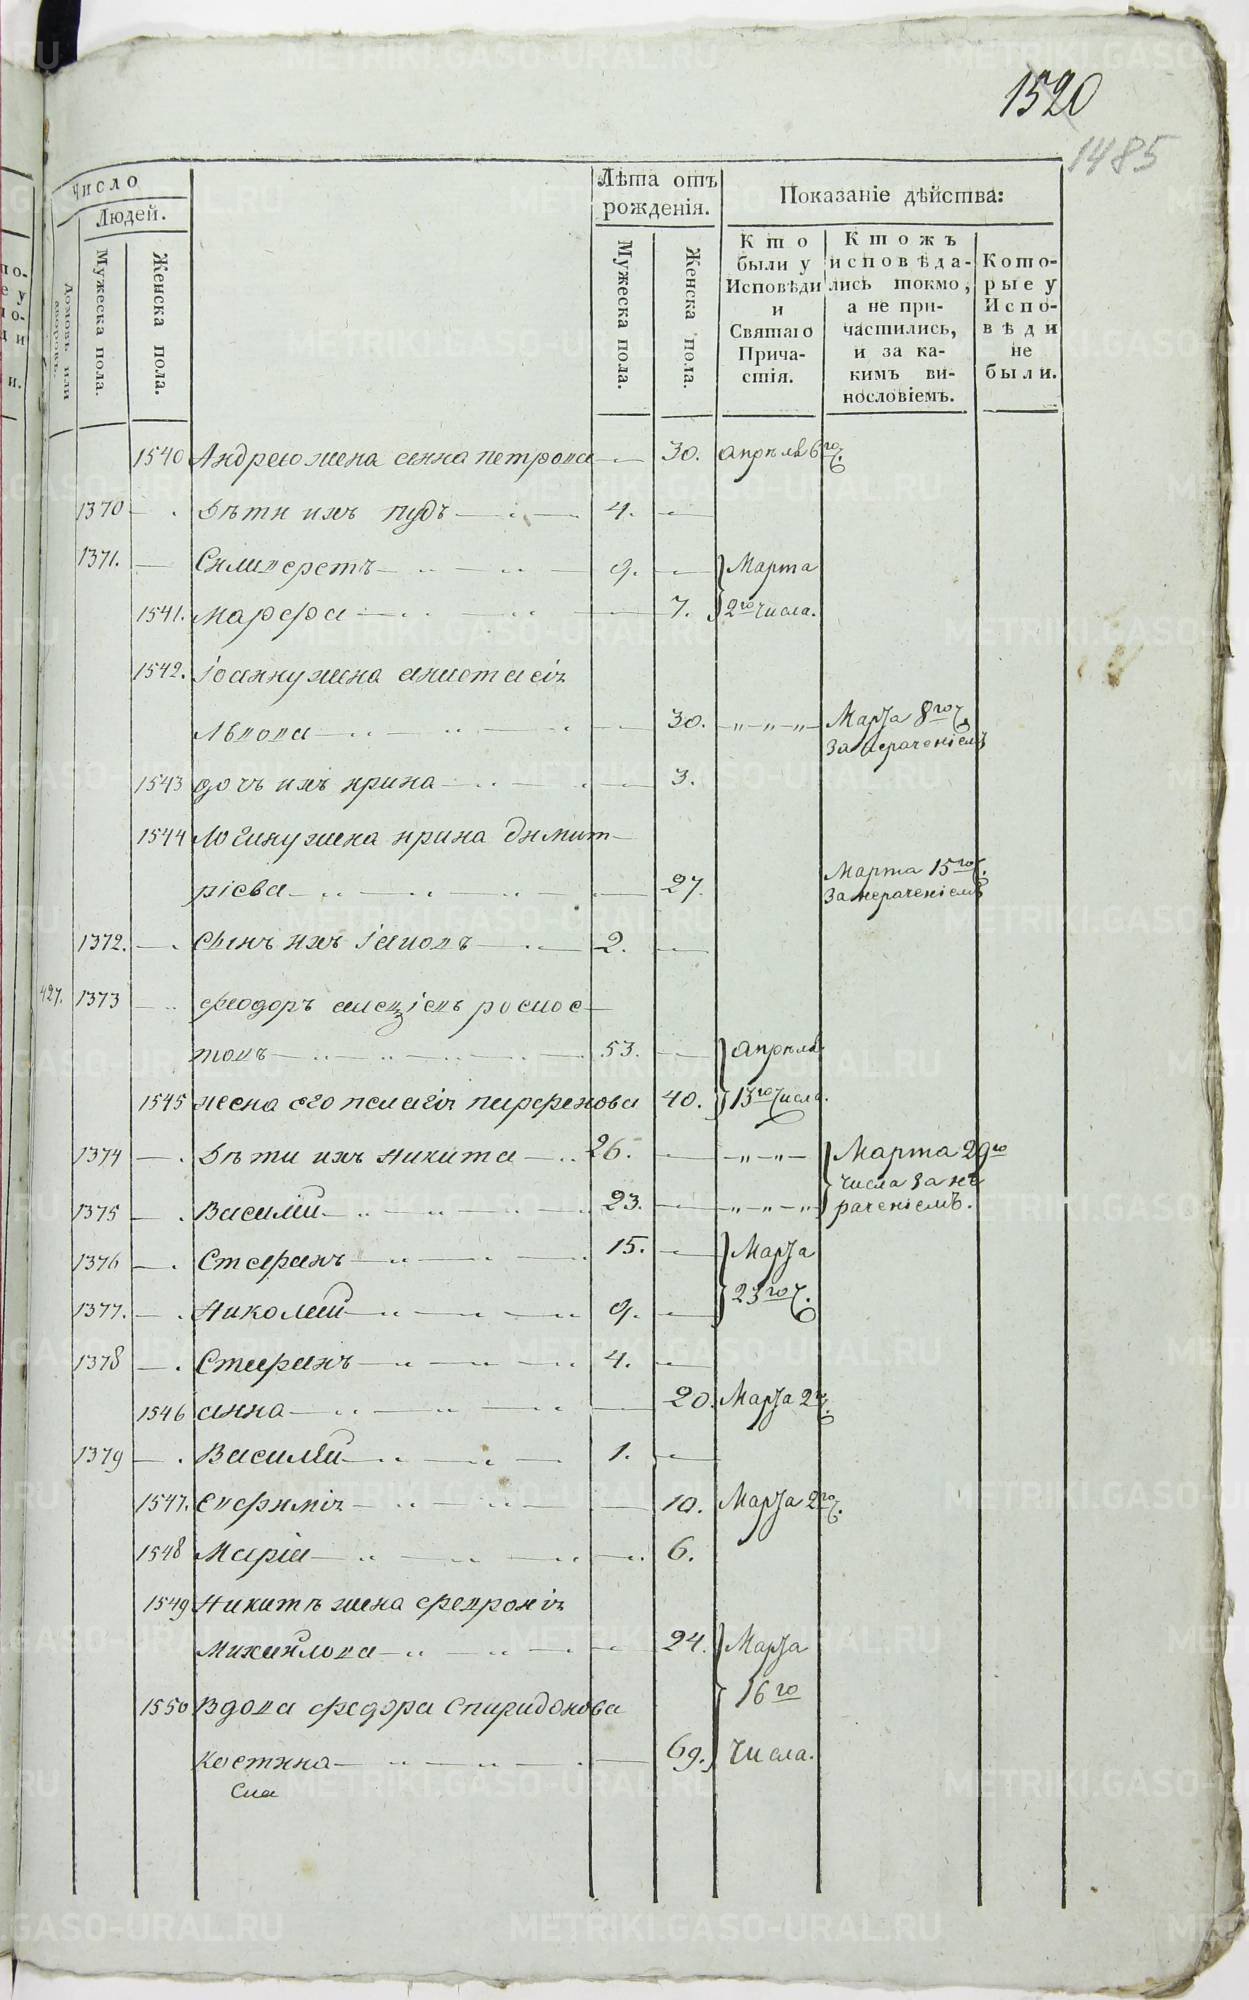 1520
1485
Число
Людей.
Домовъ или дворовъ.
Мужеска пола.
Женска пола.
Лѣта отъ рожденія.
Мужеска пола.
Женска пола.
Показаніе дѣйства:
Кто были у Исповѣди и Святаго Причастія.
Ктожъ исповѣдались токмо, а не причастились, и за какимъ винословіемъ.
Которые у Исповѣди не были.
1540 Андрею жена анна петрова — 30. апрѣля 6го ч.
1370 — Дѣти ихъ пудъ — 4. —
1371. — Силиверстъ — 9. — Марта
1541. Марфа — 7. 2го числа.
1542. Іоанну жена анастасія
Львова — 30. — „ — „ — „ — Марта 8го ч.
За нераченіемъ
1543 дочь ихъ ирина — 3.
1544 Логину жена ирина димит-
ріева — 27. Марта 15го ч.
За нераченіемъ
1372. — Сынъ ихъ Іаковъ — 2. —
427. 1373 — феодоръ алеѯіевъ
товъ — 53. — апрѣля
1545 жена его пелагія парфенова 40. 13го числа.
1374 — Дѣти ихъ никита — 26. — „ — „ — Марта 29го
числа за не
1375 — Василій — 23. — „ — „ — „ раченіемъ.
1376 — Стефанъ — 15. — Марта
1377. — Николай — 9. — 23го ч.
1378 — Стефанъ — 4. —
1546 анна — 20. Марта 2 ч.
1379 — Василій — 1. —
1547. Евфимія — 10. Марта 2го ч.
1548 Марія — 6.
1549 Никитѣ жена февронія
Михайлова — 24. Марта
16го
1550 Вдова федора Спиридонова
Костина — 69. Числа.